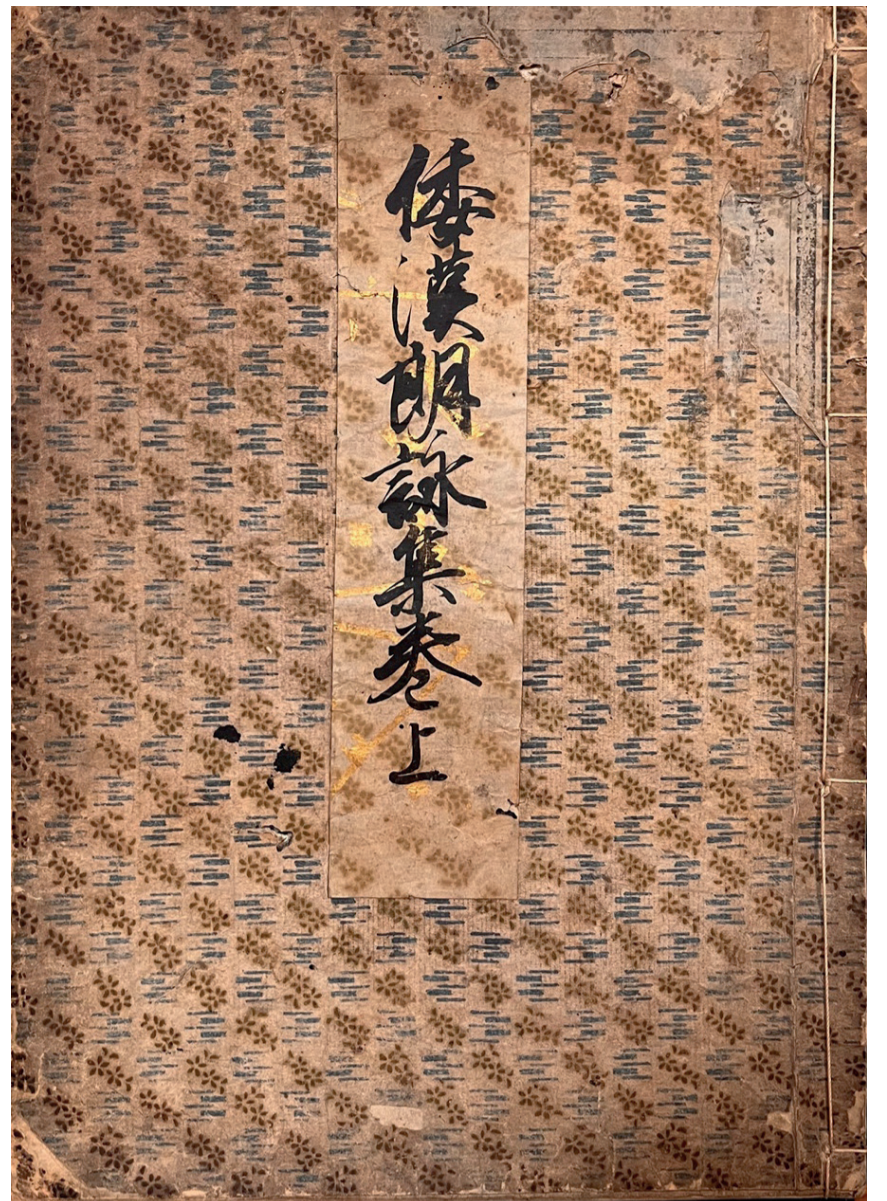 倭漢朗詠集巻上